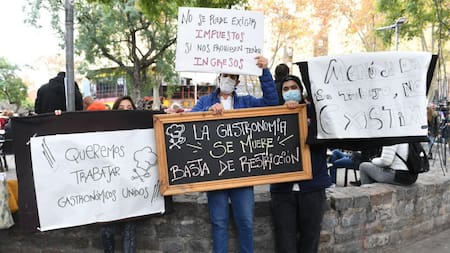 No se puede exigir
impuestos
si nos prohiben tener
ingresos
Queremos
trabajar
gastronómicos
unidos
La gastronomía
se muere
basta de restricción